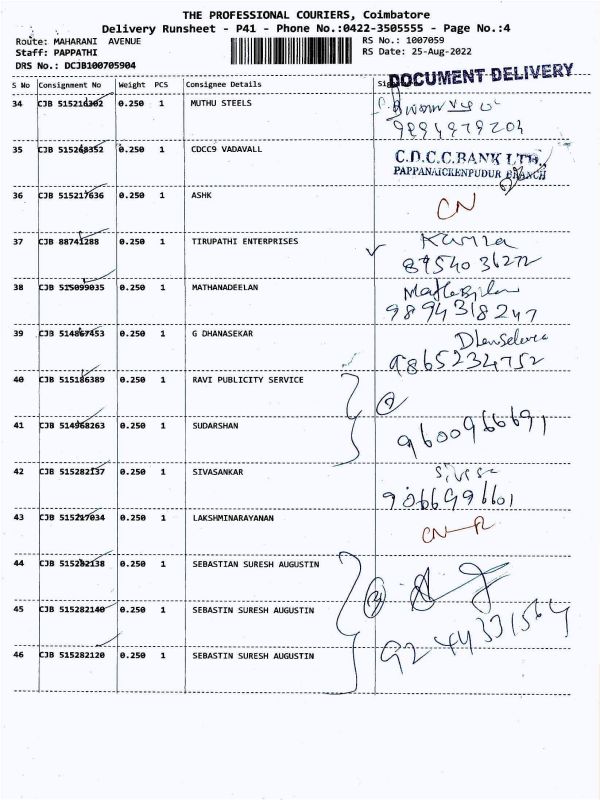 THE PROFESSIONAL COURIERS, Coimbatore
Delivery Runsheet - P41 - Phone No.:0422-3505555 - Page No.:4
Route: MAHARANI AVENUE RS No.: 1007059
Staff: PAPPATHI RS Date: 25-Aug-2022
DRS No.: DCJB100705904
DOCUMENT DELIVERY
S No Consignment No Weight PCS Consignee Details
34 CJB 515210302 0.250 1 MUTHU STEELS
9894979204
35 CJB 515268352 0.250 1 CDCC9 VADAVALL
C.D.C.C.BANK LTD.,
PAPPANAICKENPUDUR BRANCH
36 CJB 515217636 0.250 1 ASHK
CN
37 CJB 88741288 0.250 1 TIRUPATHI ENTERPRISES
8954036272
38 CJB 515099035 0.250 1 MATHANADEELAN
9894318247
39 CJB 514867453 0.250 1 G DHANASEKAR
9865234752
40 CJB 515186389 0.250 1 RAVI PUBLICITY SERVICE
41 CJB 514968263 0.250 1 SUDARSHAN
9600966691
42 CJB 515282137 0.250 1 SIVASANKAR
9066996601
43 CJB 515217034 0.250 1 LAKSHMINARAYANAN
CN-R
44 CJB 515282138 0.250 1 SEBASTIAN SURESH AUGUSTIN
45 CJB 515282140 0.250 1 SEBASTIN SURESH AUGUSTIN
9244331564
46 CJB 515282120 0.250 1 SEBASTIN SURESH AUGUSTIN